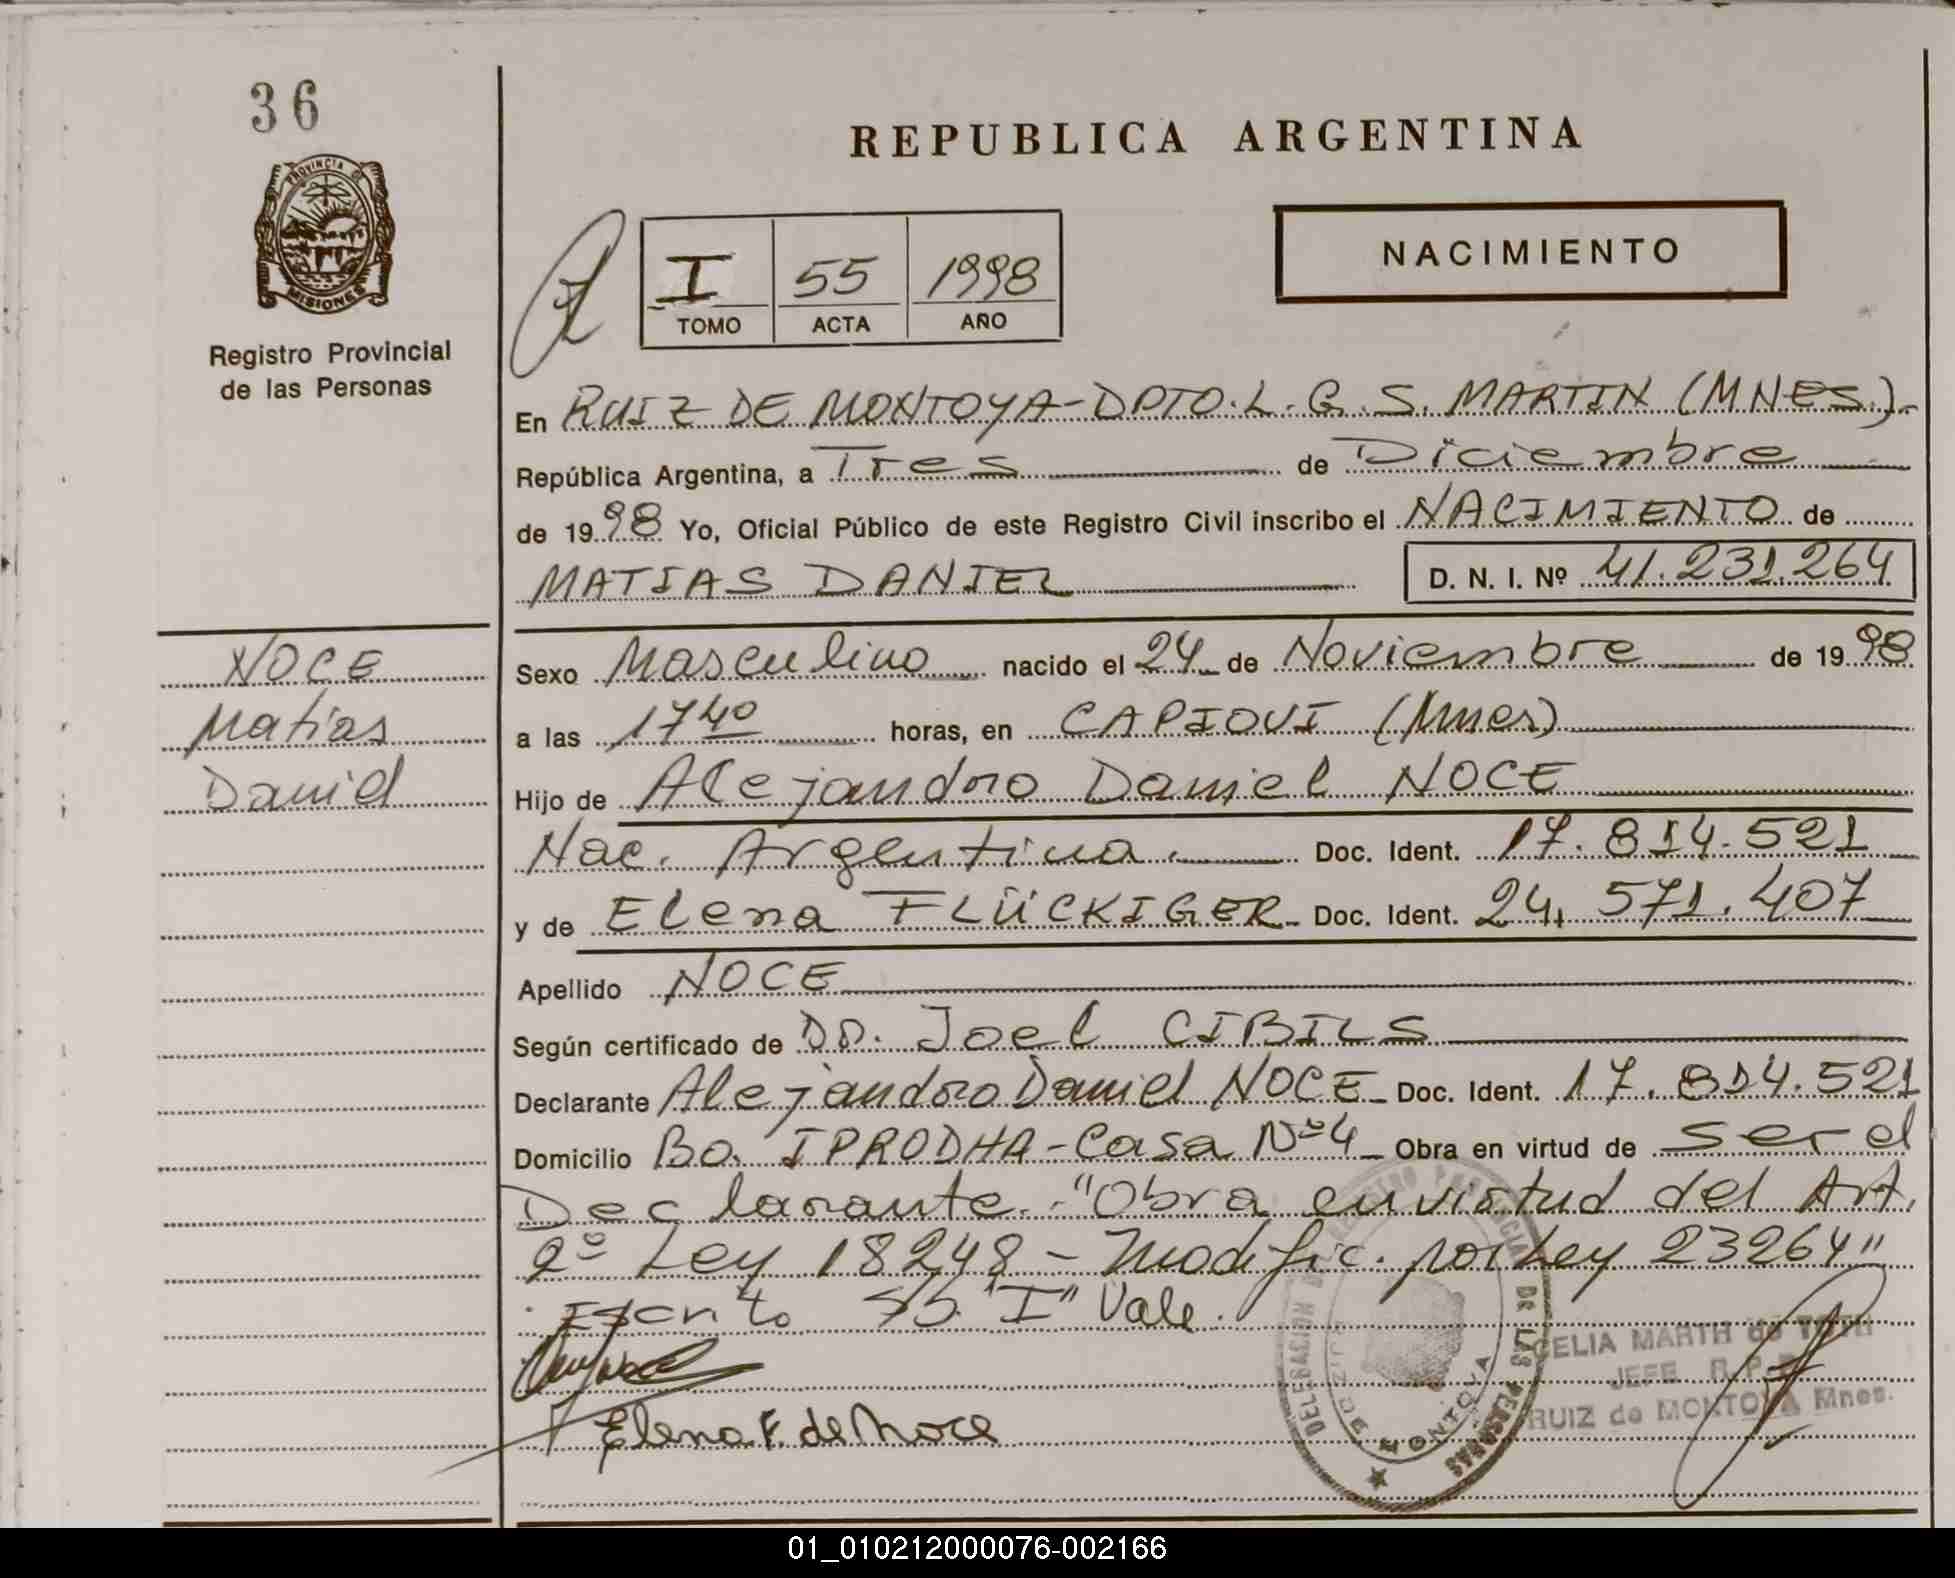 36
PROVINCIA DE
MISIONES
Registro Provincial
de las Personas
REPUBLICA ARGENTINA
I 55 1998
TOMO ACTA AÑO
NACIMIENTO
En RUIZ DE MONTOYA-DPTO. L. G. S. MARTIN (MNES.)-
República Argentina, a Tres de Diciembre
de 1998 Yo, Oficial Público de este Registro Civil inscribo el NACIMIENTO de
MATIAS DANIEL D. N. I. Nº 41.231.264
NOCE
Matias
Daniel
Sexo Masculino nacido el 24 de Noviembre de 1998
a las 17 40 horas, en CAPIOVI (Mnes)
Hijo de Alejandro Daniel NOCE
Nac. Argentina. Doc. Ident. 17.814.521
y de Elena FLÜCKIGER- Doc. Ident. 24.571.407
Apellido NOCE
Según certificado de DR. Joel CIBILS
Declarante Alejandro Daniel NOCE- Doc. Ident. 17.814.521
Domicilio Bo. IPRODHA-Casa Nº4- Obra en virtud de ser el
Declarante.-"Obra en virtud del Art.
2º Ley 18248-Modific. por Ley 23264"
Escrito s/b "I" Vale.
Elena F. de Noce
DELEGACION DEL REGISTRO PROVINCIAL DE LAS PERSONAS
RUIZ DE MONTOYA
CELIA MARTH de
JEFE R. P. P.
RUIZ de MONTOYA Mnes.
01_010212000076-002166